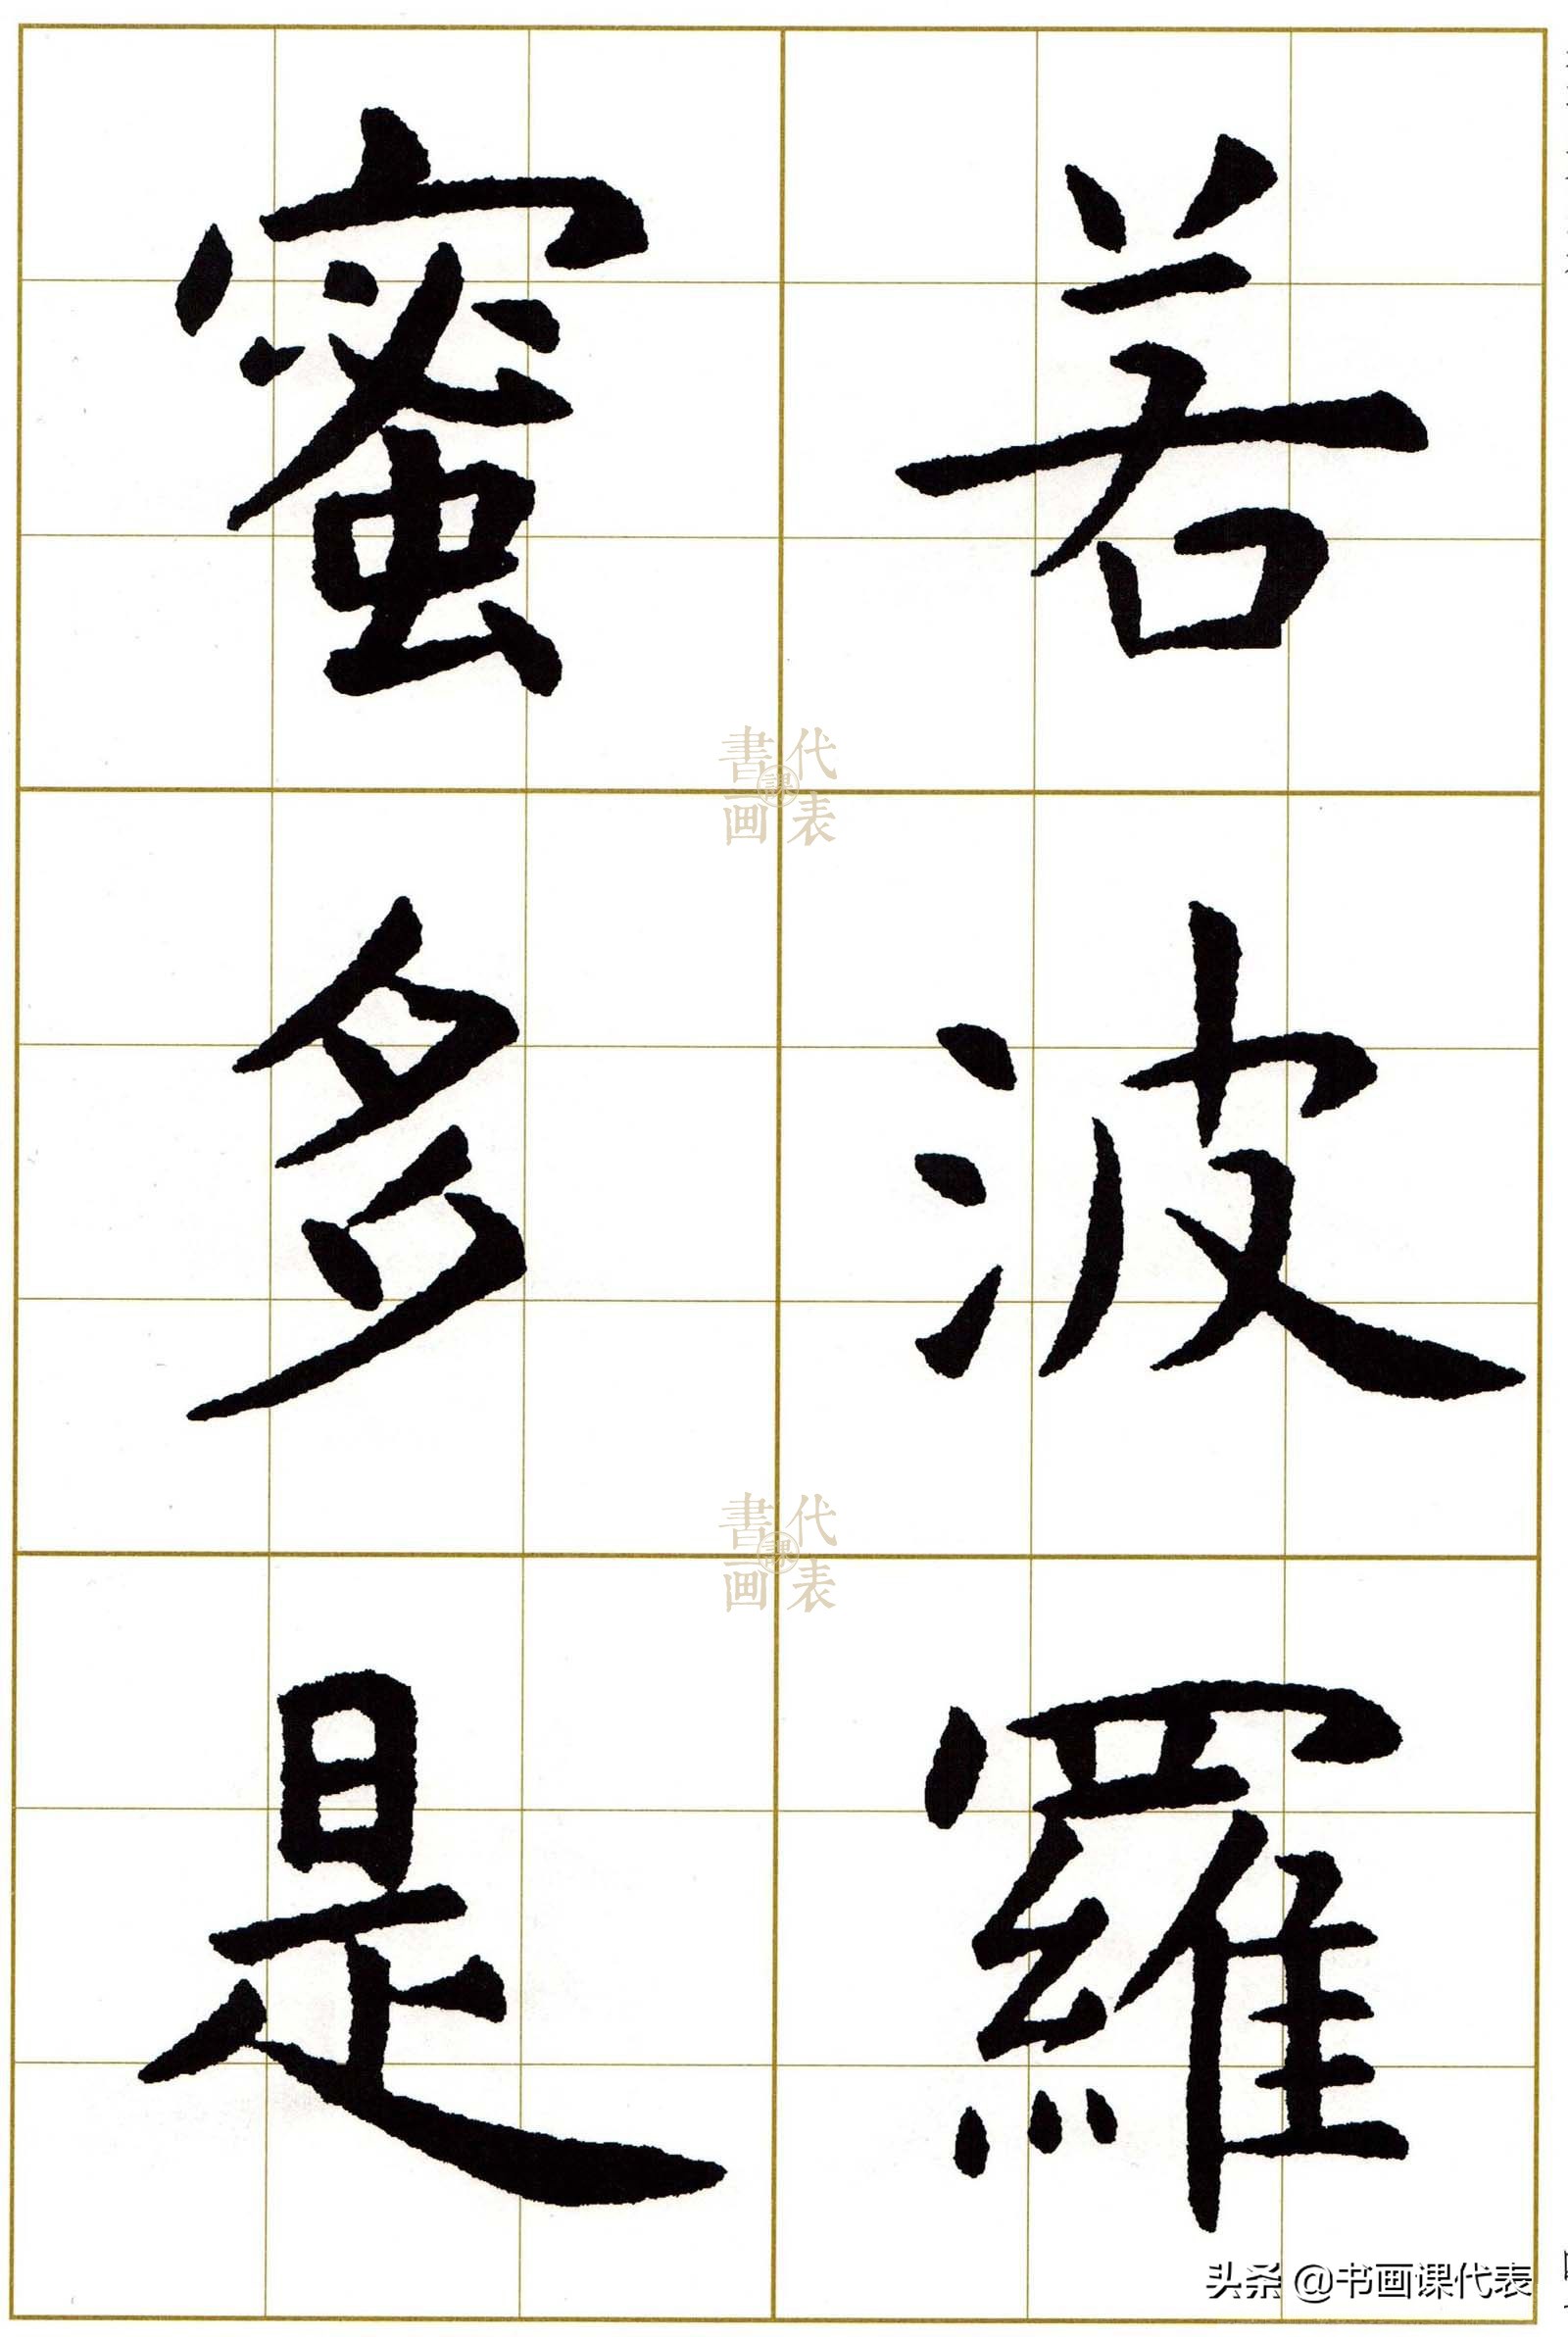 若波羅
蜜多是
書画課代表
書画課代表
头条 @书画课代表